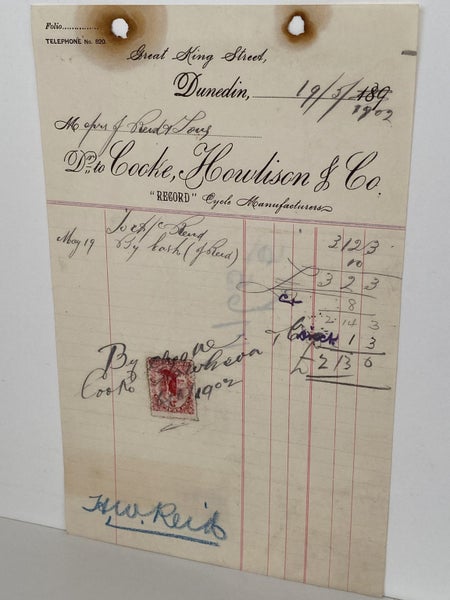 Folio
TELEPHONE No. 820.
Great King Street,
Dunedin, 19/5/ 189
1902
Messrs J Reid & Sons
Dr. to Cooke, Howlison & Co.
"RECORD" Cycle Manufacturers
To a/c Reid 3 12 3
May 19 By Cash (J Reid) 10
£ 3 2 3
8
2 14 3
1 3
£ 2 13 0
By cheque
Cooke Howlison
1902
H.W. Reid